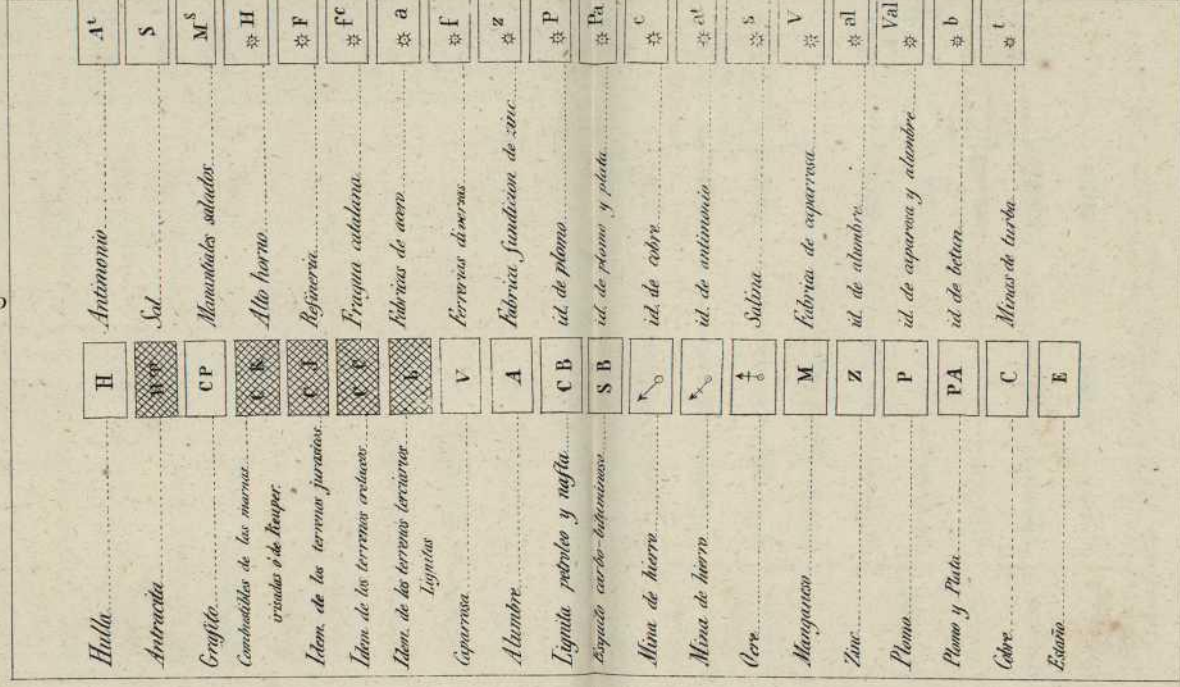 Hulla H
Antracita
Grafito CP
Combustibles de las marnas C K
irisadas ó de Keuper.
Idem. de los terrenos jurasicos C J
Idem de los terrenos cretaceos C C
Idem. de los terrenos terciarios b
Lignitas
Caparrosa V
Alumbre A
Lignita petroleo y nafta C B
Esquito carbo-bituminoso S B
Mina de hierro
Mina de hierro
Ocre
Manganeso M
Zinc Z
Plomo P
Plomo y Plata PA
Cobre C
Estaño E
Antimonio Aᵗ
Sal S
Manantiales salados Mˢ
Alto horno H
Refineria F
Fragua catalana fᶜ
Fabricas de acero a
Ferrerias diversas f
Fabrica fundicion de zinc z
id. de plomo P
id. de plomo y plata Pa
id. de cobre c
id. de antimonio at
Salina s
Fabrica de caparrosa V
id. de alumbre al
id. de caparosa y alumbre Val
id de betun b
Minas de turba t